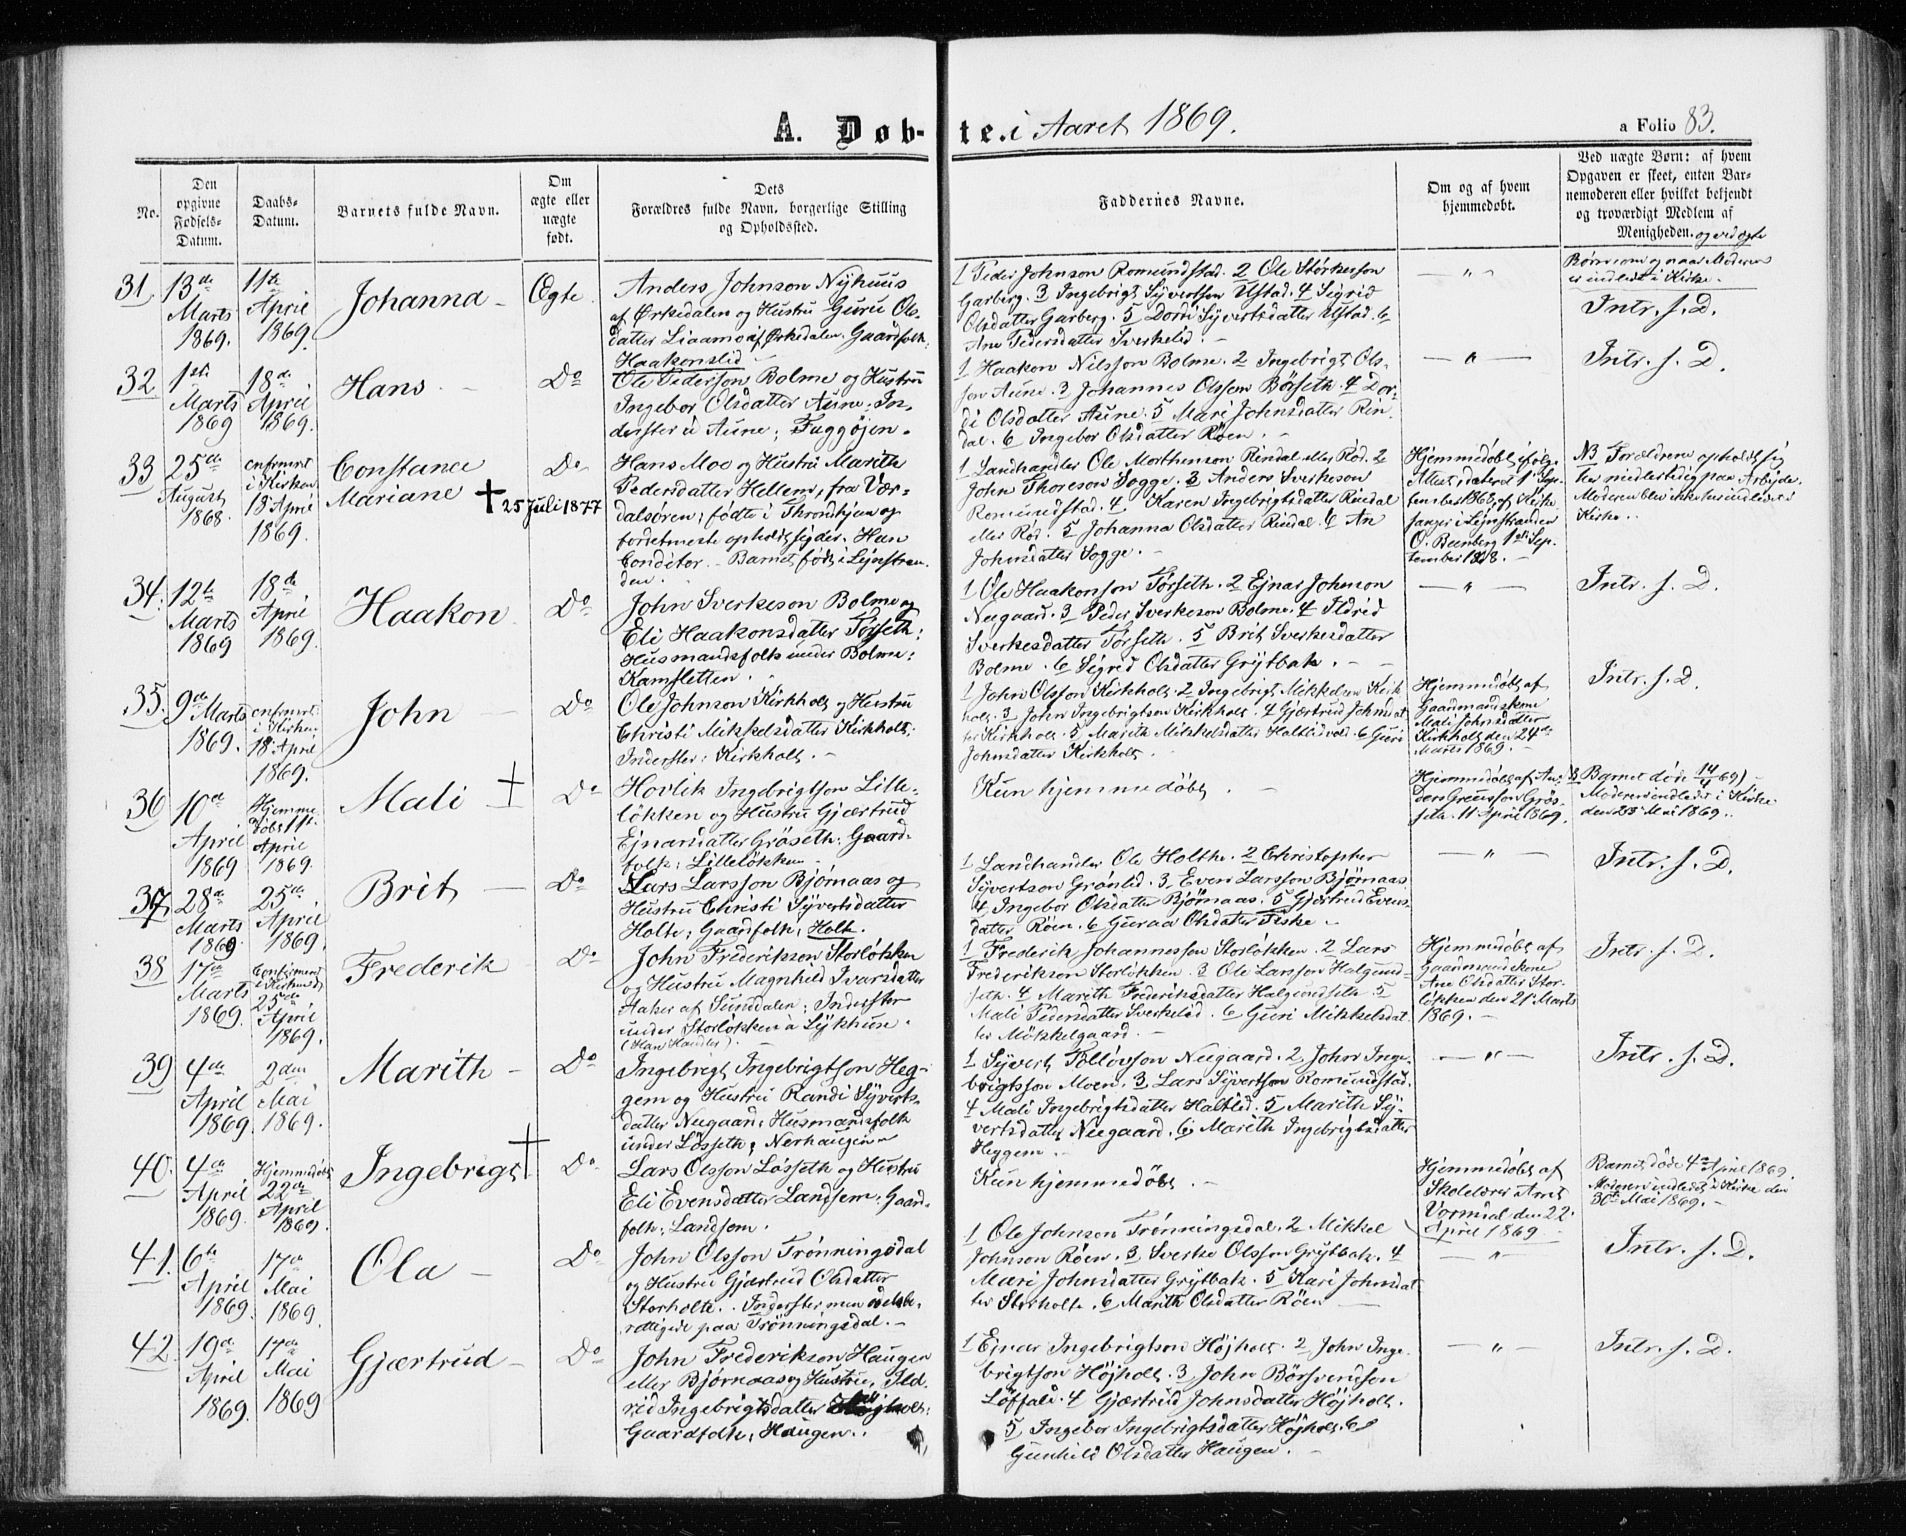 A. Døb-
te. i Aaret 1869.
a Folio 83.
No.
Den
opgivne
Fødsels-
Datum.
Daabs-
Datum.
Barnets fulde Navn.
Om
ægte eller
uægte
født.
Dets
Forældres fulde Navn, borgerlige Stilling
og Opholdssted.
Faddernes Navne.
Om og af hvem
hjemmedøbt.
Ved uægte Børn: af hvem
Opgaven er skeet, enten Bar-
nemoderen eller hvilket bekjendt
og troværdigt Medlem af
Menigheden. og ved ægte
Børn som og naar Moderen
er indledt i Kirke.
31.
13de
Marts
1869.
11te
April
1869.
Johanna
Ægte
Anders Johnson Nyhuus
af Ørkedalen og Hustru Guru Ols-
datter Liaamo af Ørkedalen. Gaardfolk:
Haakonslid
1 Peder Johnson Romundstad. 2 Ole Størkerson
Garberg. 3 Ingebrigt Syvertson Ustad. 4 Sigrid
Olsdatter Garberg. 5 Dorri Syvertsdatter Ustad. 6
Ane Pedersdatter Sverkelid.
— " —
Intr. s. D.
32
1ste
Marts
1869
18de
April
1869.
Hans
Do
Ole Pederson Bolme og Hustru
Ingebor Olsdatter Aune. In-
derster u Aune; Fuggøjen.
1 Haakon Nilsson Bolme. 2 Ingebrigt Ols-
son Aune. 3 Johannes Olsson Børseth. 4 Dor-
di Olsdatter Aune. 5 Mari Johnsdatter Rin
dal. 6 Ingebor Olsdatter Røen.
— " —
Intr. s. D.
33
25de
August
1868.
confirmeret
i Kirken
18 April
1869.
Constance
Mariane † 25 Juli 1877
Do
Hans Moe og Hustru Marith
Pedersdatter Hellem, fra Vær-
dalsøren; fødte i Throndhjem og
fordetmeste opholdt sig der. Han
Conditor. - Barnet født i Lejnstran-
den.
1 Landhandler Ole Morthenson Rindal eller Rød. 2
John Thoreson Sogge. 3 Anders Sverkeson
Romundstad. 4 Karen Ingebrigtsdatter Rindal
eller Rød. 5 Johanna Olsdatter Rindal. 6 An
Johnsdatter Sogge.
Hjemmedøbt ifølg.
Attest, dateret 1 Sep-
tember 1868, af Kirke
sanger i Lejnstranden
O. Beenberg 1ste Sep-
tember 1868.
NB Forældrene opholdt sig
her midlertidig paa Arbejde.
Moderen blev ikke her indledt i
Kirke.
34.
12te
Marts
1869
18de
April
1869.
Haakon
Do
John Sverkeson Bolme og
Eli Haakonsdatter Tørseth:
Husmandsfolk under Bolme:
Kamsletten.
1 Ole Haakonson Tørseth. 2 Ejnar Johnson
Neegaard. 3 Peder Sverkeson Bolme. 4 Ildrid
Sverkesdatter Tørseth. 5 Brit Sverkesdatter
Bolme. 6 Sigrid Olsdatter Grytbak.
— " —
Intr. s. D.
35.
9de Marts
1869.
confirmeret
i Kirken
18 April
1869.
John
Do
Ole Johnson Kirkholt og Hustru
Christi Mikkelsdatter Kirkholt:
Inderster: Kirkholt.
1 John Olsson Kirkholt. 2 Ingebrigt Mikkelson Kirk
holt. 3 John Ingebrigtson Kirkholt. 4 Gjærtrud Johnsdat
ter Kirkholt. 5 Marith Mikkelsdatter Haltlidvold. 6 Guri
Johnsdatter Kirkholt.
Hjemmedøbt af
Gaardmandskone
Mali Johnsdatter
Kirkholt den 24de
Marts 1869.
Intr. s. D.
36
10de
April
1869
Hjemme
døbt 11te
April
1869.
Mali †
Do
Hovlik Ingebrigtson Lille-
løkken og Hustru Gjærtrud
Ejnarsdatter Grøseth: Gaard-
folk: Lilleløkken
Kun hjemmedøbt.
Hjemmedøbt af An-
ders Greusson Grøs-
seth 11 April 1869.
NB Barnet døde 14/4 69)
Moderen indledt i Kirke
den 23 Mai 1869.
37
28de
Marts
1869
25de
April
1869.
Brit
Do
Lars Larsson Bjørnaas og
Hustru Christi Syvertsdatter
Holte: Gaardfolk: Holte.
1 Landhandler Ole Holthe. 2 Christopher
Syvertson Grønlid. 3 Even Larsson Bjørnaas
4 Ingebor Olsdatter Bjørnaas. 5 Gjertrud Evens-
datter Røen. 6 Guraa Olsdatter Fiske.
— " —
Intr. s. D.
38
17de
Marts
1869.
Confirmeret
i Kirken
25de
April
1869.
Frederik
Do
John Frederikson Storløkken
og Hustru Magnhild Ivarsdatter
Aaker af Sundalen: Inderster
under Storløkken a Sykhuse.
(Han Handler).
1 Frederik Johannesson Storløkken. 2 Lars
Frederikson Storløkken. 3 Ole Larsson Halgund-
seth. 4 Marith Frederiksdatter Halgundseth. 5
Mali Pedersdatter Sverkelid. 6 Guri Mikkelsdat
ter Møkkelgaard.
Hjemmedøbt af
Gaardmandskone
Ane Olsdatter Stor-
løkken den 21 Marts
1869.
Intr. s. D.
39
4de
April
1869.
2den
Mai
1869.
Marith
Do
Ingebrigt Ingebrigtson Heg-
gem og Hustru Randi Syverts-
datter Neegaard: Husmandsfolk
under Løsseth; Nerhaugen
1 Syvert Tolløvson Neegaard. 2 John Inge-
brigtsson Moen. 3 Lars Syvertson Romundstad.
4 Mali Ingebrigtsdatter Haltlid. 5 Marith Sy-
vertsdatter Neegaard. 6 Marith Ingebrigtsdatter
Heggem.
— " —
Intr. s. D.
40.
4de
April
1869.
Hjemmedøbt
22de
April
1869.
Ingebrigt †
Do
Lars Olsson Løsseth og Hustru
Eli Evensdatter Landsem: Gaard-
folk: Landsem.
Kun hjemmedøbt.
Hjemmedøbt af
Skolelærer Arnt
Vormdal den 22
April 1869
Barnet døde 4de April 1869.
Moderen indledt i Kirke den
30te Mai 1869.
41.
6te
April
1869.
17de
Mai
1869.
Ola
Do
John Olsson Trønningsdal
og Hustru Gjærtrud Olsdatter
Storholte. Inderster, men odelsbe-
rettigede paa Trønningsdal.
1 Ole Johnson Trønningsdal. 2 Mikkel
Johnson Røen. 3 Sverke Olsson Grytbak. 4
Mari Johnsdatter Grytbak. 5 Kari Johnsdat
ter Storholte. 6 Marith Olsdatter Røen
— " —
Intr. s. D.
42.
19de
April
1869.
17de
Mai
1869
Gjærtrud
Do
John Frederikson Haugen
eller Bjørnaas og Hustru Ild-
rid Ingebrigtsdatter Højholt:
Gaardfolk; Haugen.
1 Ejnar Ingebrigtson Højholt. 2 John Inge-
brigtson Højholt. 3 John Børsvendsen
Løfald. 4 Gjærtrud Johnsdatter Højholt.
5 Ingebor Ingebrigtsdatter Højholt. 6
Gunhild Olsdatter Haugen.
— " —
Intr. s. D.